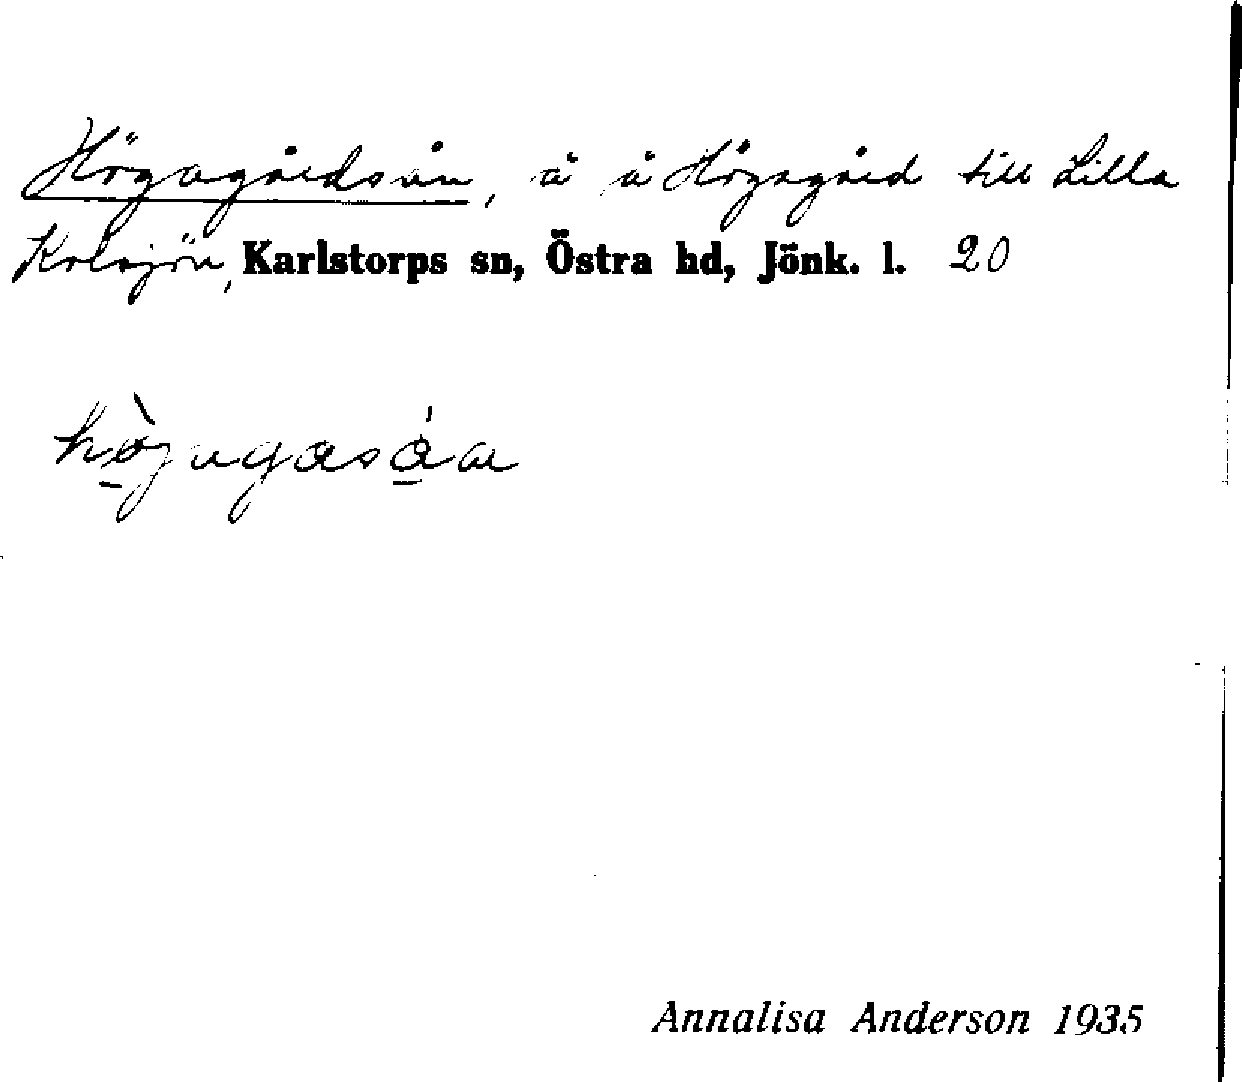 Högagärdsån, å å Högagärd till Lilla
Kolsjön, Karlstorps sn, Östra hd, Jönk. l. 20
Annalisa Anderson 1935